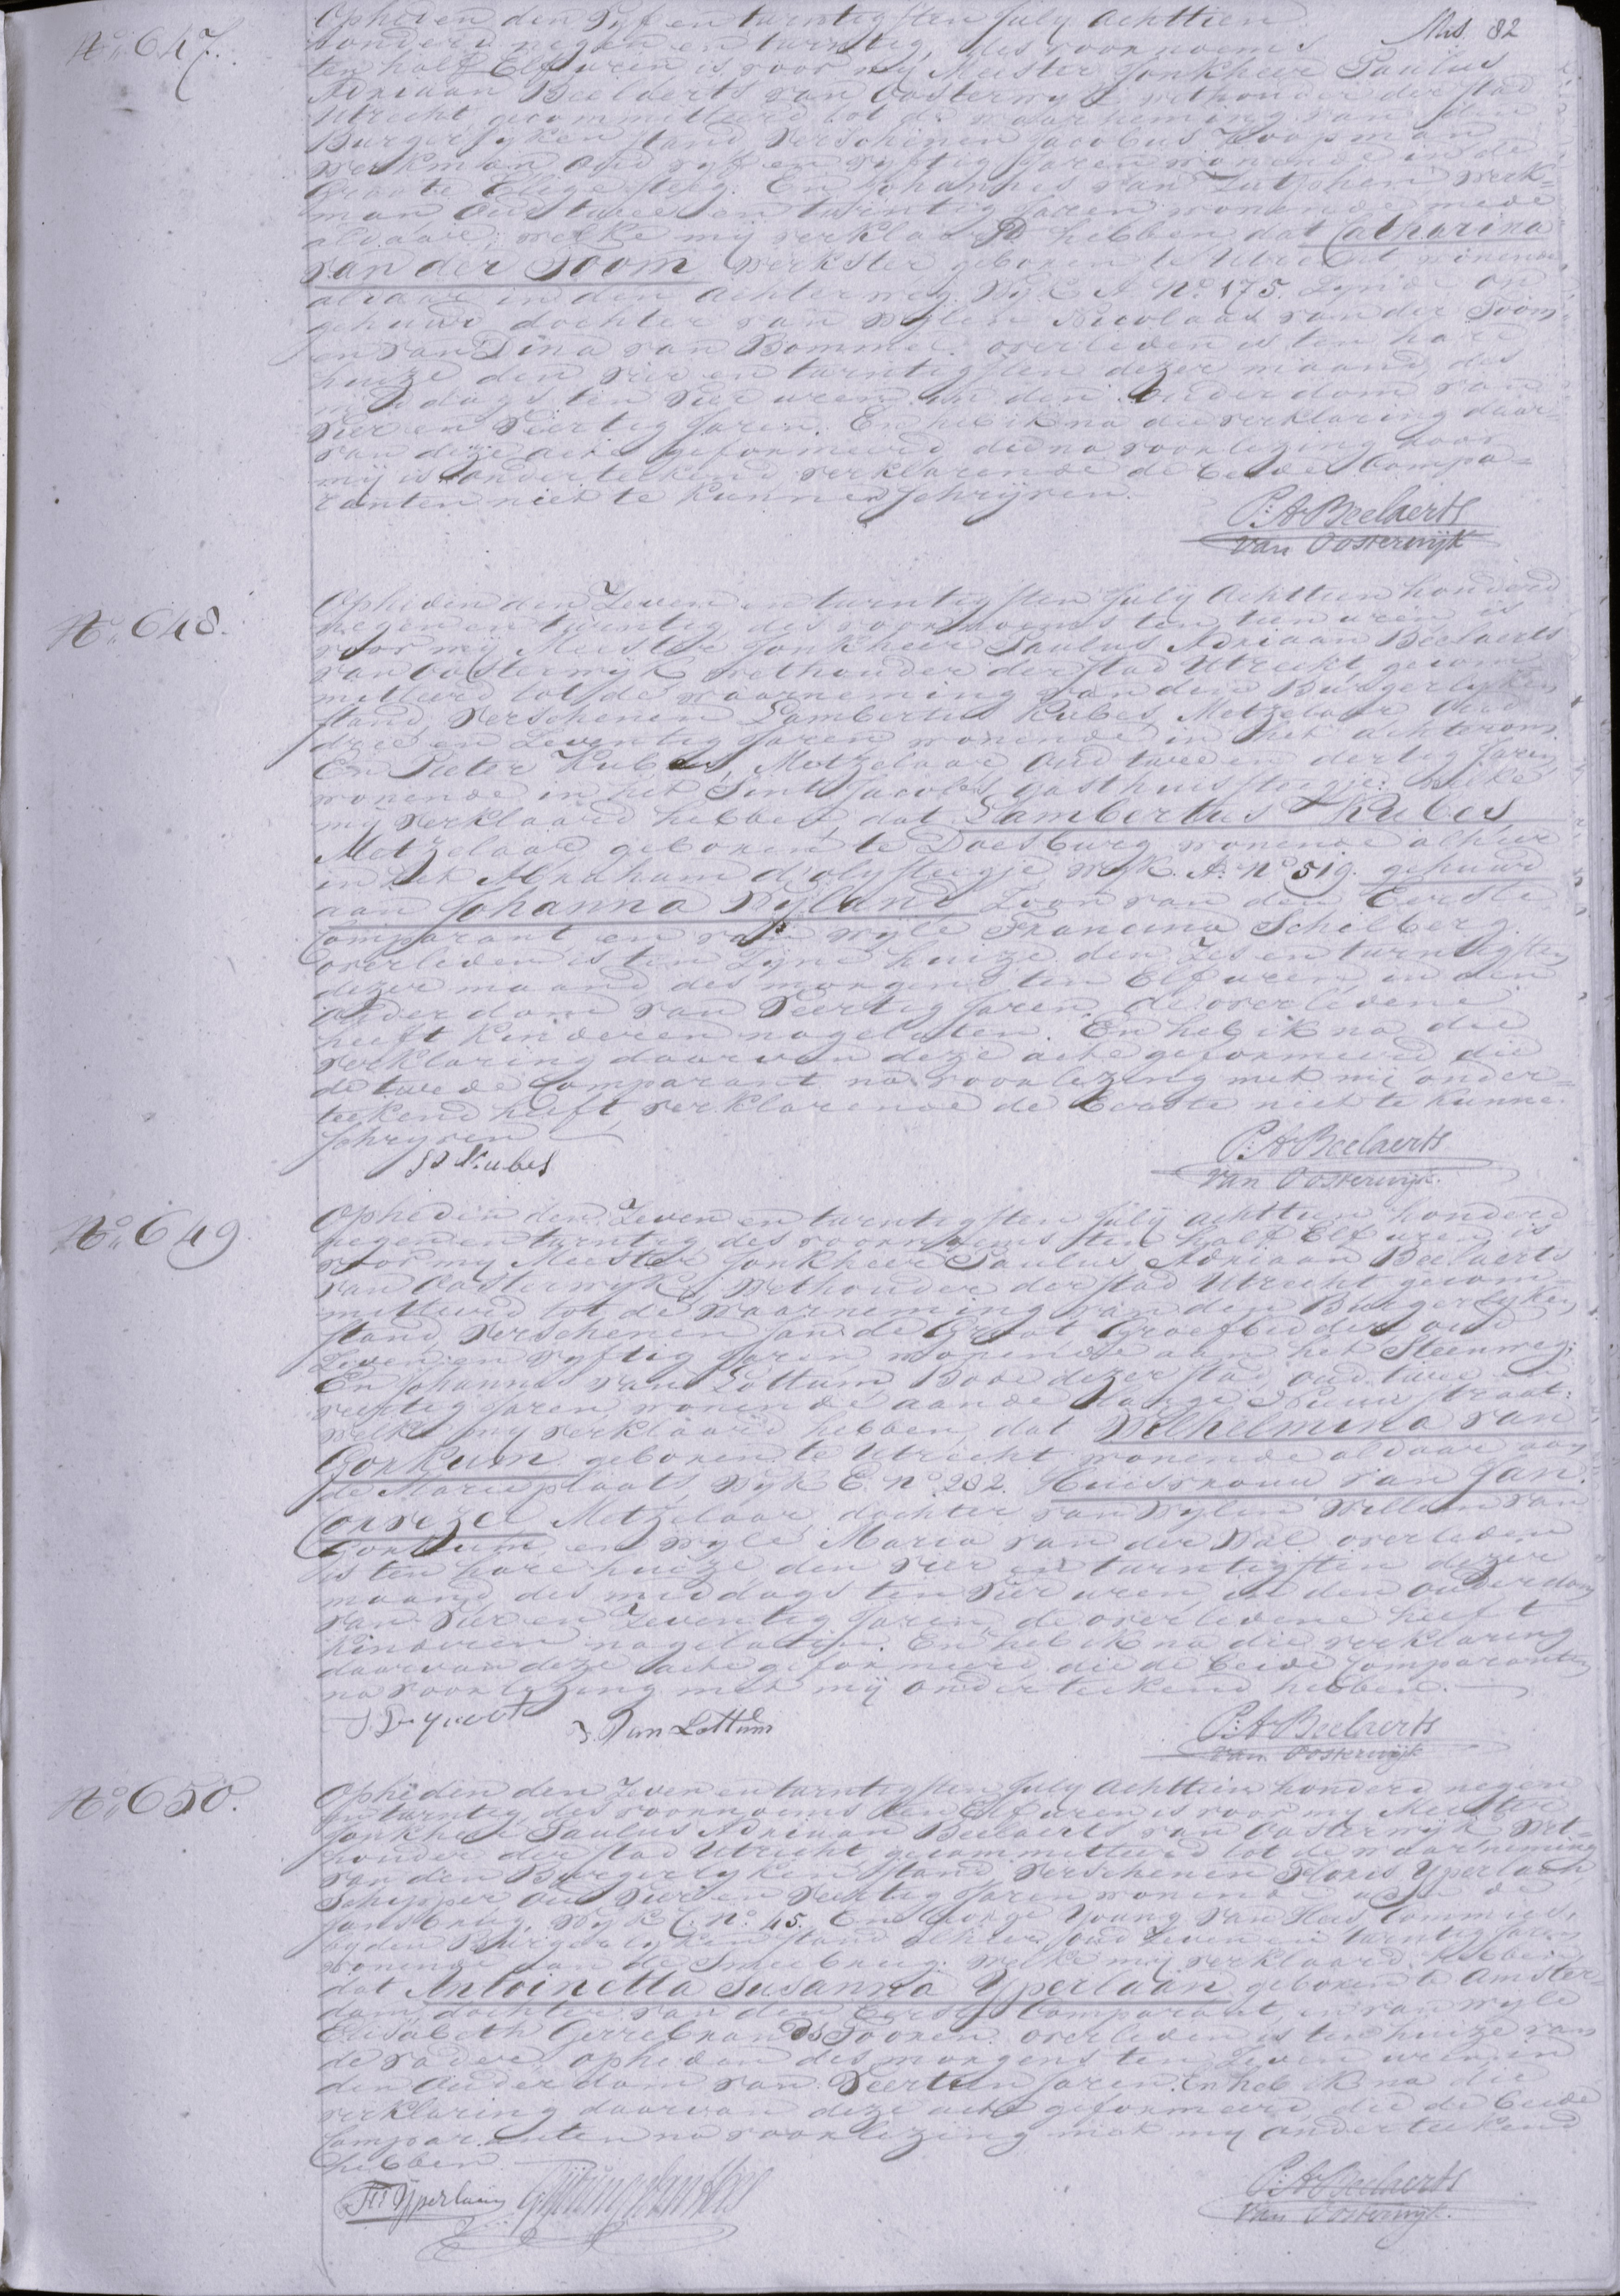 Mis. 82
No. 647.
Opheden den Vyf en twintigsten July Achttien
honderd negen en twintig, des voornoems
ten half Elf uren is voor my Meester Jonkheer Paulus
Adriaan Beelaerts van Oosterwyk wethouder der stad
Utrecht gecommitteerd tot de waarneming van den
Burgerlyken stand Verschenen Jacobus Koopman
werkman oud vyf en vyftig Jaren wonende in de
Groote Eligesteeg. En Johannes van Zutphen werk=
man Oud twee en twintig Jaren wonende mede
aldaar; welke mij verklaard hebben dat Catharina
van der Toom Werkster geboren te Utrecht, wonende
aldaar in den Achterweg Wyk A No. 175. Zynde on
gehuwd dochter van Wylen Nicolaas van der Toom
en van Dina van Bommel. overleden is ten hare
huize den vier en twintigsten dezer maand des
middags ten vier uren in den Ouderdom van
Vier en Veertig Jaren. En heb ik na die verklaring daar
van deze acte geformeerd, die na voorlezing door
mij is onderteekend verklarende de beide Compa=
ranten niet te kunnen schryven.
P: A Beelaerts
van Oosterwijk
No. 648.
Opheden den Zeven en twintigsten July Achttien honderd
negen en twintig des voornoems ten tien uren is
voor mij Meester Jonkheer Paulus Adriaan Beelaerts
van Oosterwijk wethouder der stad Utrecht gecom
mitteerd tot de waarneming van den Burgerlyken
stand, Verschenen Lambertus Kubes, Metzelaar Oud
drie en Zeventig Jaren wonende in het Achterom.
En Pieter Kubes, Metzelaar Oud twee en dertig Jaren
wonende in het Sint Jacobs gasthuissteegje: welke
mij verklaard hebben dat Lambertus Kubes
Metzelaar geboren te Doesburg wonende alhier
in het Abraham dolysteegje Wyk A. No 519. gehuwd
aan Johanna Wyland Zoon van den Eerste
Comparant en van wyle Francina Schilberg.
overleden is ten Zyne huize den Zes en twintigsten
dezer maand des morgens ten Elf uren in den
Ouderdom van Veertig Jaren, de overledene
heeft Kinderen nagelaten. En heb ik na die
verklaring daarvan deze acte geformeerd die
de tweede Comparant na voorlezing met mij onder=
teekend heeft, verklarende de Eerste niet te kunne
schryven
P Kubes
P: A Beelaerts
van Oosterwijk.
No. 649.
Opheden den Zeven en twintigsten July achttien honderd
negen en twintig des voornoems ten half Elf uren is
voor my Meester Jonkheer Paulus Adriaan Beelaerts
van Oosterwyk, Wethouder der stad Utrecht gecom=
mitteerd tot de waarneming van den Burgerlyken
stand, Verschenen Jan de Groot Groefbidder oud
Zeven en vyftig Jaren wonende aan het Steenweg;
En Johannes van Lottum Bode dezer stad, oud twee en
veertig Jaren wonende aan de Lange Nieuwstraat:
welke my verklaard hebben, dat Wilhelmina van
Gorkum geboren te Utrecht wonende aldaar aan
de Marieplaats, Wyk E. No. 282. Huisvrouw van Jan
Metzelaar, dochter van Wylen Willem van
Gorkum en wyle Maria van der Wal overleden
is ten hare huize den vier en twintigsten dezer
maand, des middags ten vier uren, in den ouderdom
van vier en Zeventig Jaren, de overledene heeft
Kinderen nagelaten. En heb ik na die verklaring
daarvan deze acte geformeerd, die de beide Comparanten
na voorlezing met mij onderteekend hebben.
J. De groot
J van Lottum
P: A Beelaerts
van Oosterwijk
No. 650.
Opheden den Zeven en twintigsten July Achttien honderd negen
en twintig des voornoems ten Elf uren is voor my Meester
Jonkheer Paulus Adriaan Beelaerts van Oosterwyk, Wet=
houder der stad Utrecht gecommitteerd tot de waarneming
van den Burgerlyken stand Verschenen Floris Yperlaan
Schipper Oud vier en veertig Jaren wonende aan de
Jansbrug, Wyk C. No. 45. En George Young van Hees Commies
by den Burgerlyken stand alhier, oud Zeven en twintig Jaren
wonende aan de Smeebrug: welke mij verklaard hebben
dat Antoinetta Susanna Yperlaan geboren te Amster=
dam, dochter van den Eerste Comparant, en van wyle
Elisabeth Gerrebrands Tooren. overleden is ten huize van
de vader, opheden des morgens ten Zeven uren in
den Ouderdom van Veertien Jaren. En heb ik na die
verklaring daarvan deze acte geformeerd, die de beide
Comparanten na voorlezing met my onderteekend
hebben
Yperlaan
P: A Beelaerts
van Oosterwijk.